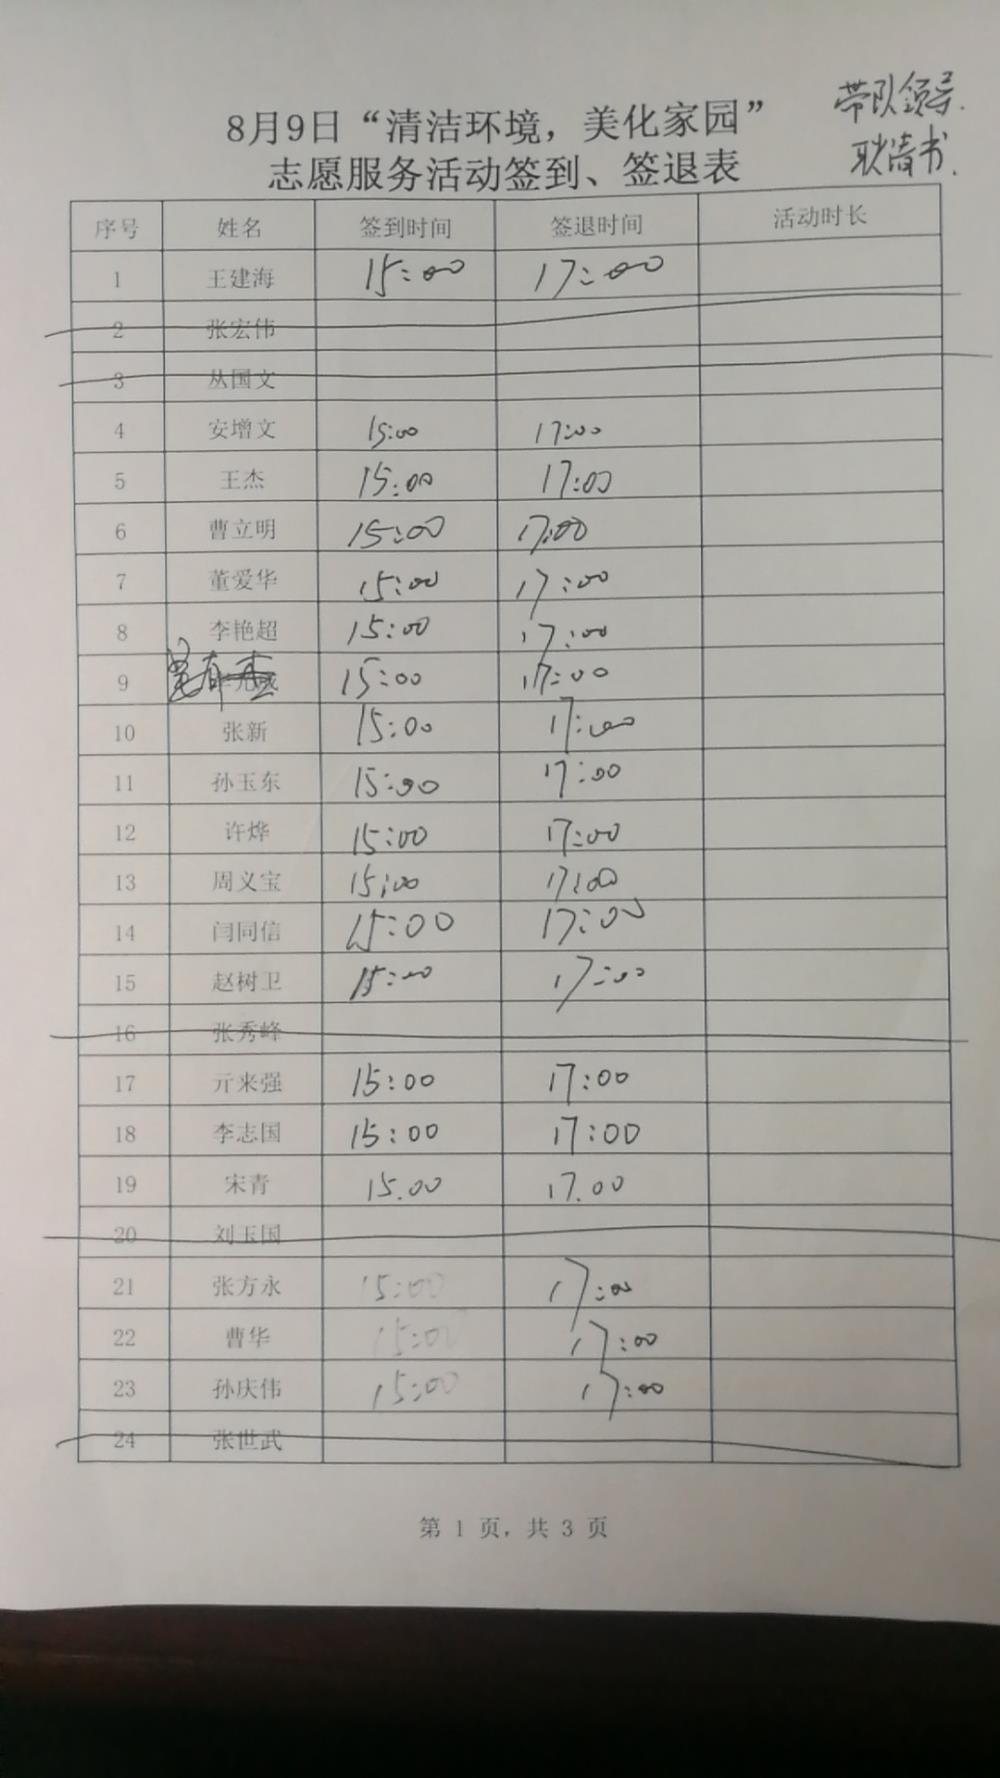 带队领导.
耿清书.
8月9日“清洁环境，美化家园”
志愿服务活动签到、签退表
序号 姓名 签到时间 签退时间 活动时长
1 王建海 15:00 17:00
2 张宏伟
3 丛国文
4 安增文 15:00 17:00
5 王杰 15:00 17:00
6 曹立明 15:00 17:00
7 董爱华 15:00 17:00
8 李艳超 15:00 17:00
9 15:00 17:00
10 张新 15:00 17:00
11 孙玉东 15:00 17:00
12 许烨 15:00 17:00
13 周义宝 15:00 17:00
14 闫同信 15:00 17:00
15 赵树卫 15:00 17:00
16 张秀峰
17 亓来强 15:00 17:00
18 李志国 15:00 17:00
19 宋青 15.00 17.00
20 刘玉国
21 张方永 15:00 17:00
22 曹华 15:00 17:00
23 孙庆伟 15:00 17:00
24 张世武
第 1 页，共 3 页